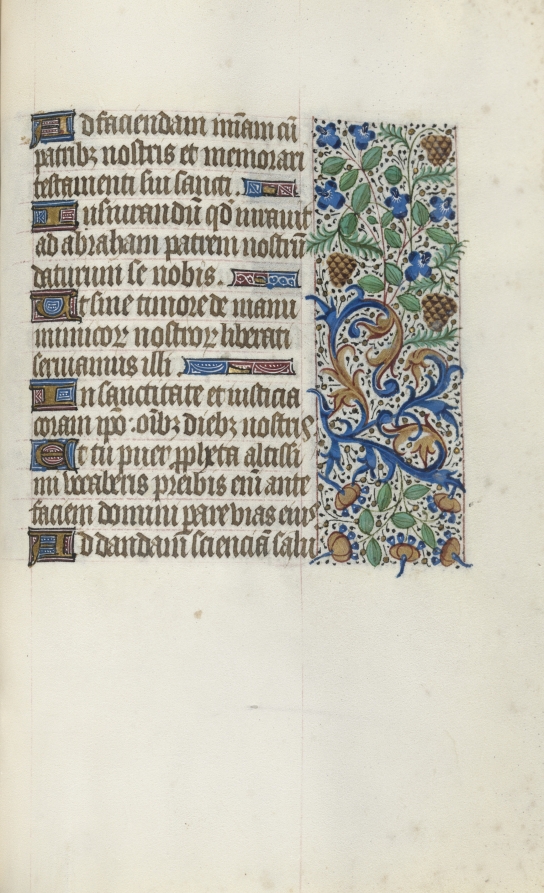 Ad faciendam miām cū
patribꝫ nostris et memorari
testamenti sui sancti.
Iusiurandū qd̄ iurauit
ad abraham patrem nostrū
daturum se nobis.
Ut sine timore de manu
inimicoꝝ nostroꝝ liberati
seruiamus illi
In sanctitate et iusticia
coram ipō .oībꝫ diebꝫ nostris
Et tu puer ꝓpheta altissi
mi vocaberis preibis eīm ante
faciem domini parare vias eius
Ad dandam̄ scienciā salu